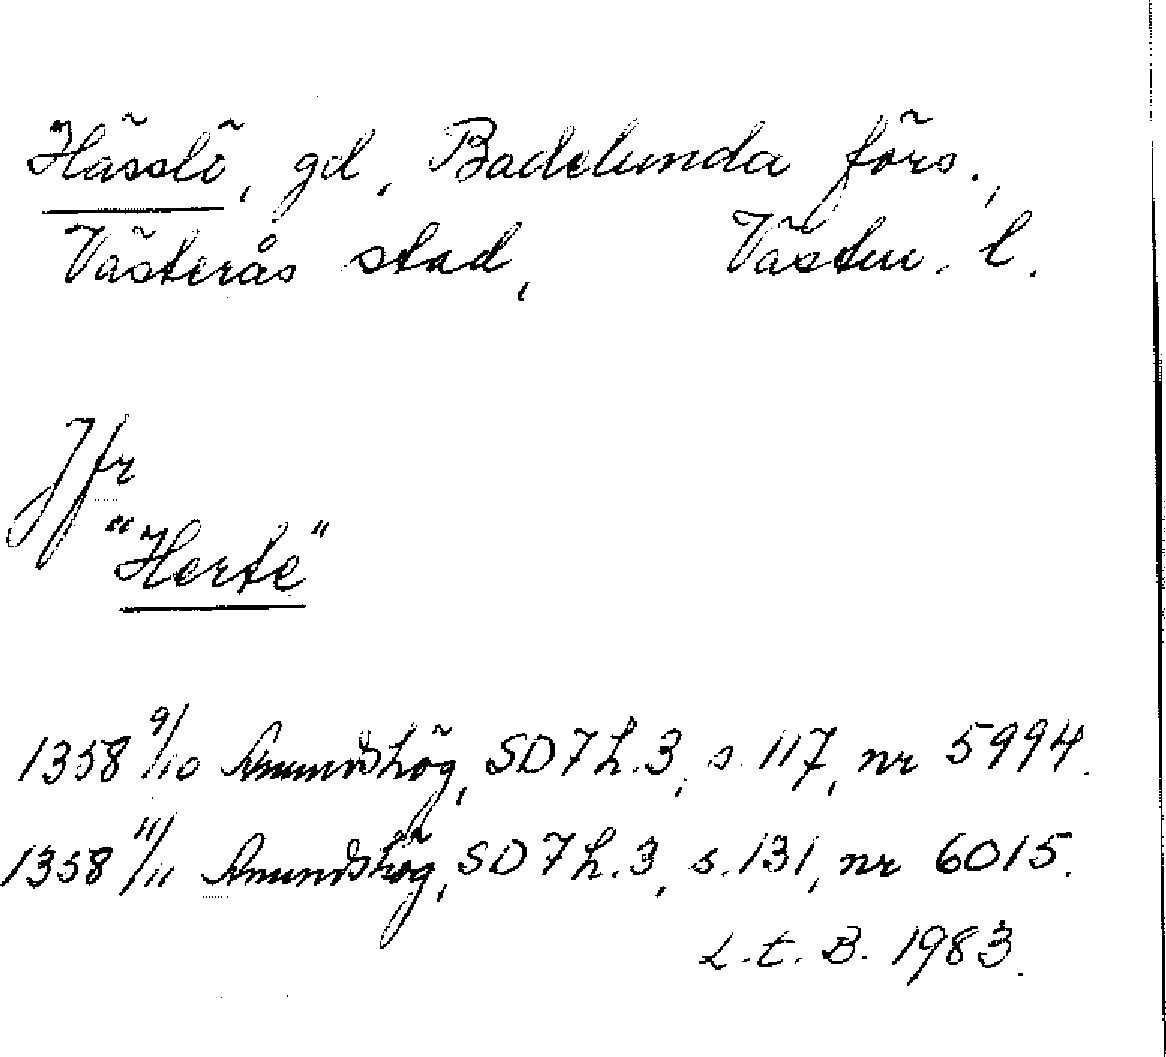 Hässlö, gd, Badelunda förs.,
Västerås stad, Västm. l.
Jfr
"Herte"
1358 9/10 Anundshög, SD 7 h. 3, s. 117, nr 5994.
1358 11/11 Anundshög, SD 7 h. 3, s. 131, nr 6015.
L. t. B. 1983.